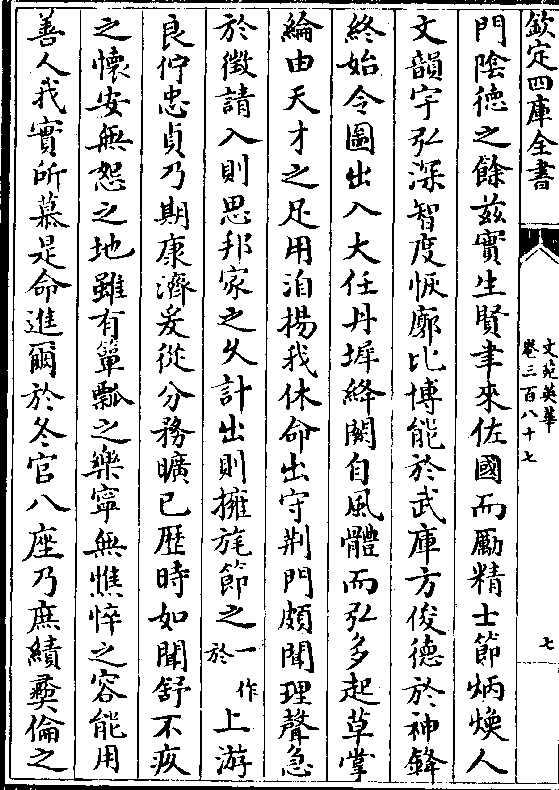 欽定四庫全書
文苑英華
卷三百八十七
七
門陰德之餘兹實生賢聿來佐國而勵精士節炳煥人
文韻宇弘深智度恢廓比博能於武庫方俊德於神鋒
終始令圖出入大任丹墀絳闕自風體而弘多起草掌
綸由天才之足用洎揚我休命出守荆門頗聞理聲急
於徵請入則思邦家之乆計出則擁旄節之一作於上游
良佇忠貞乃期康濟爰從分務曠已歴時如聞舒不疚
之懷安無怨之地雖有簞瓢之樂寧無憔悴之容能用
善人我實所慕是命進爾於冬官八座乃庶績彛倫之